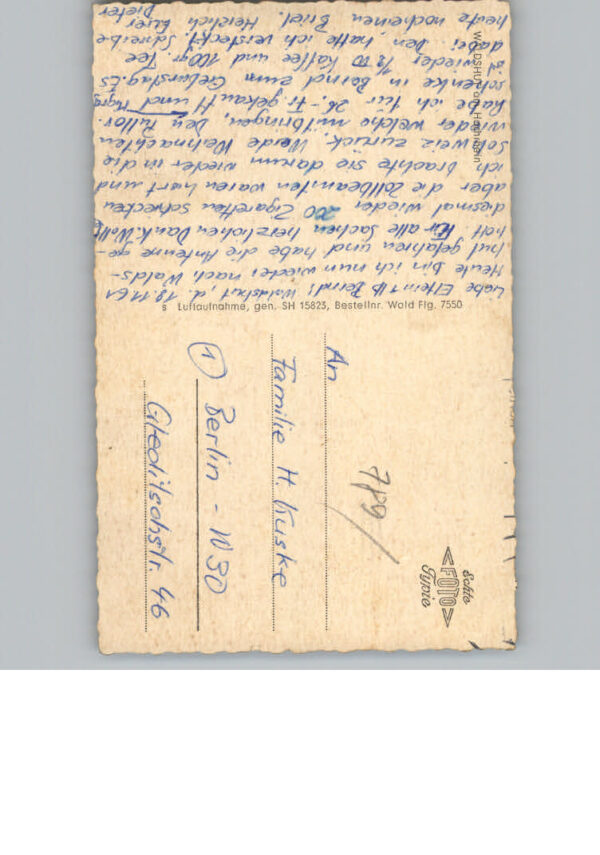 Liebe Eltern Bernd! Waldshut, d. 18.11.61
Heute bin ich nun wieder nach Walds-
hut gefahren und habe die Antenne ge-
holt Für alle Sachen herzlichen Dank. Wollte
diesmal wieder 200 Zigaretten
aber die Zollbeamten waren hart und
ich brachte sie darum wieder in die
Schweiz zurück. Werde Weihnachten
wieder welche mitbringen. Den
habe ich für 26,- Fr gekauft und
schenke in Bernd zum Es
ist wieder Kaffee und 100gr. Tee
dabei. Den hatte ich versteckt. Schreibe
heute noch einen Brief. Herzlich Eurer
Dieter
WALDSHUT Hochrhein
Luftaufnahme, gen. SH 15823, Bestellnr. Wald Flg. 7550
Echte
FOTO
Typie
789/
An
Familie H. Kuske
① Berlin - W30
Gleditschstr. 46